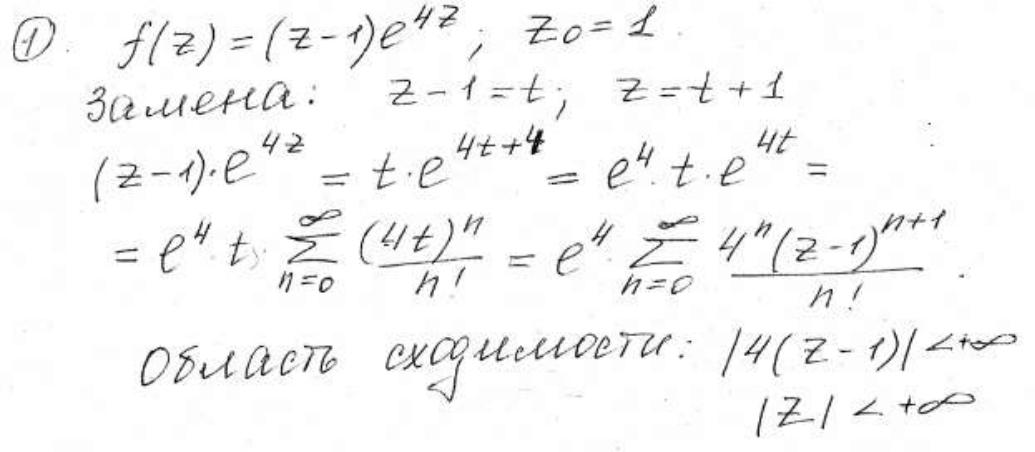 ① f(z) = (z-1)e^{4z}; z₀ = 1.
Замена: z-1 = t; z = t+1
(z-1)·e^{4z} = t·e^{4t+4} = e^4·t·e^{4t} =
= e^4·t·∑_{n=0}^{∞} (4t)^n/n! = e^4·∑_{n=0}^{∞} 4^n(z-1)^{n+1}/n!.
Область сходимости: |4(z-1)| < +∞
|z| < +∞